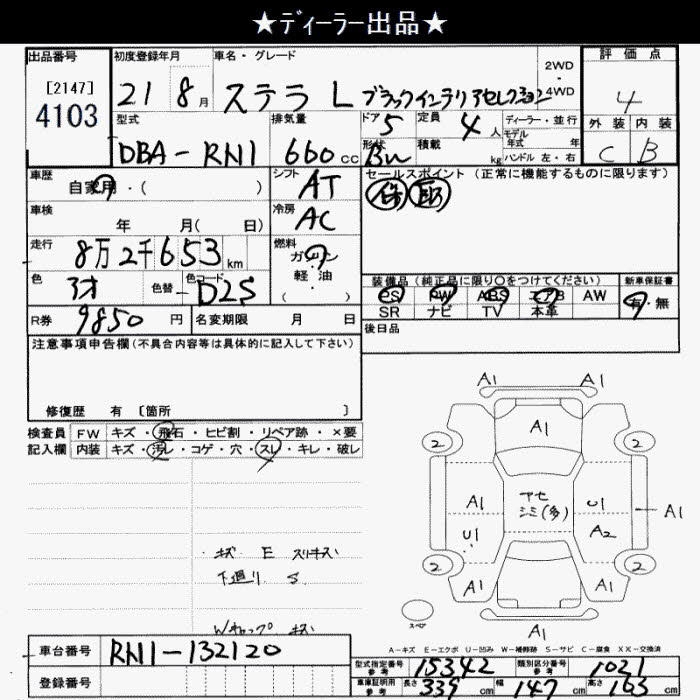 ★ディーラー出品★
出品番号
[2147]
4103
初度登録年月
21 8月
車名・グレード
ステラ L ブラックインテリアセレクション
2WD
・
4WD
評価点
4
外装 内装
C B
型式
DBA-RN1
排気量
660cc
ドア 5
形状 Bn
定員 4人
積載 kg
ディーラー・並行
モデル
年式 年
ハンドル 左・右
車歴
自家用・( )
シフト
AT
セールスポイント (正常に機能するものに限ります)
車検
年 月( 日)
冷房
AC
走行
8万2千653km
燃料
ガソリン
軽・油
( )
色
色替
色コード
D2S
装備品(純正品に限り〇をつけてください)
PS PW ABS エアB AW
SR ナビ TV 本革
新車保証書
有・無
R券
9850円
名変期限 月 日
後日品
注意事項申告欄(不具合内容等は具体的に記入して下さい)
修復歴 有 [箇所 ]
検査員
記入欄
FW キズ・飛石・ヒビ割・リペア跡・×要
内装 キズ・汚レ・コゲ・穴・スレ・キレ・破レ
キズ E スリキズ
下廻り S
Wキャップ キズ
A1 A1
A1
2 2
A1
アセ
シミ(多)
U1
A1
U1
A2
2 2
A1 A1
A1
スペア
A-キズ E-エクボ U-凹み W-補修跡 S-サビ C-腐食 XX-交換済
車台番号
RN1-132120
登録番号
型式指定番号
参考
15342
類別区分番号
参考
1021
車庫証明用
参考
長さ 339cm
幅 147cm
高さ 163cm